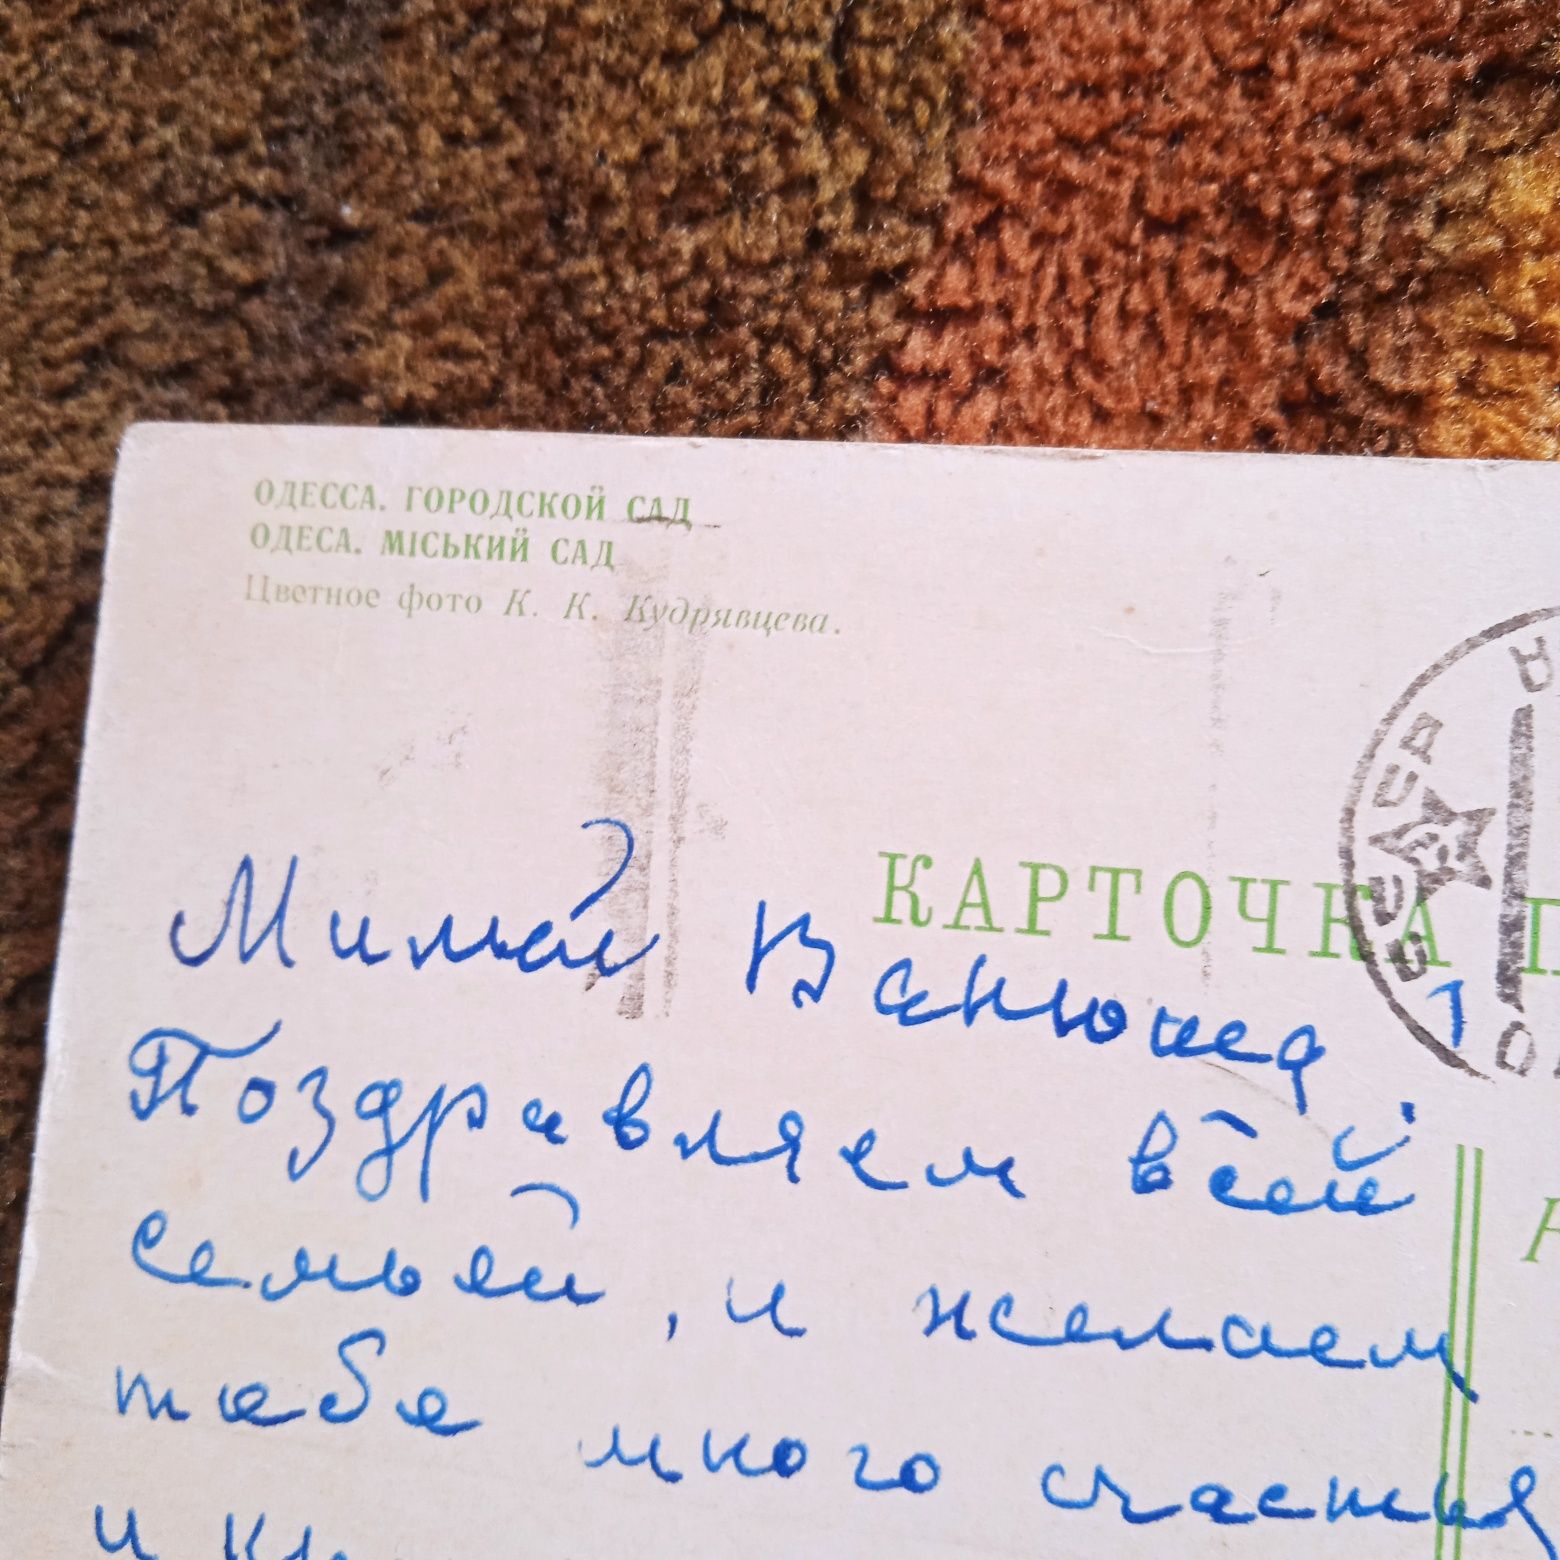 ОДЕССА. ГОРОДСКОЙ САД
ОДЕСА. МІСЬКИЙ САД
Цветное фото К. К. Кудрявцева.
КАРТОЧКА П
СССР
Милый
Поздравляем всей
семьей, и желаем
тебе много счастья
и кр